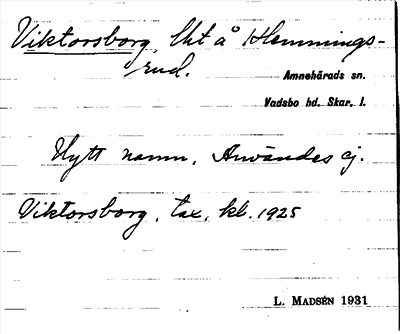 Viktorsborg, Uht å Hemmings-
rud.
Amnehärads sn.
Vadsbo hd. Skar. l.
Nytt namn, Användes ej.
Viktorsborg, tax. kl. 1925
L. MADSÉN 1931